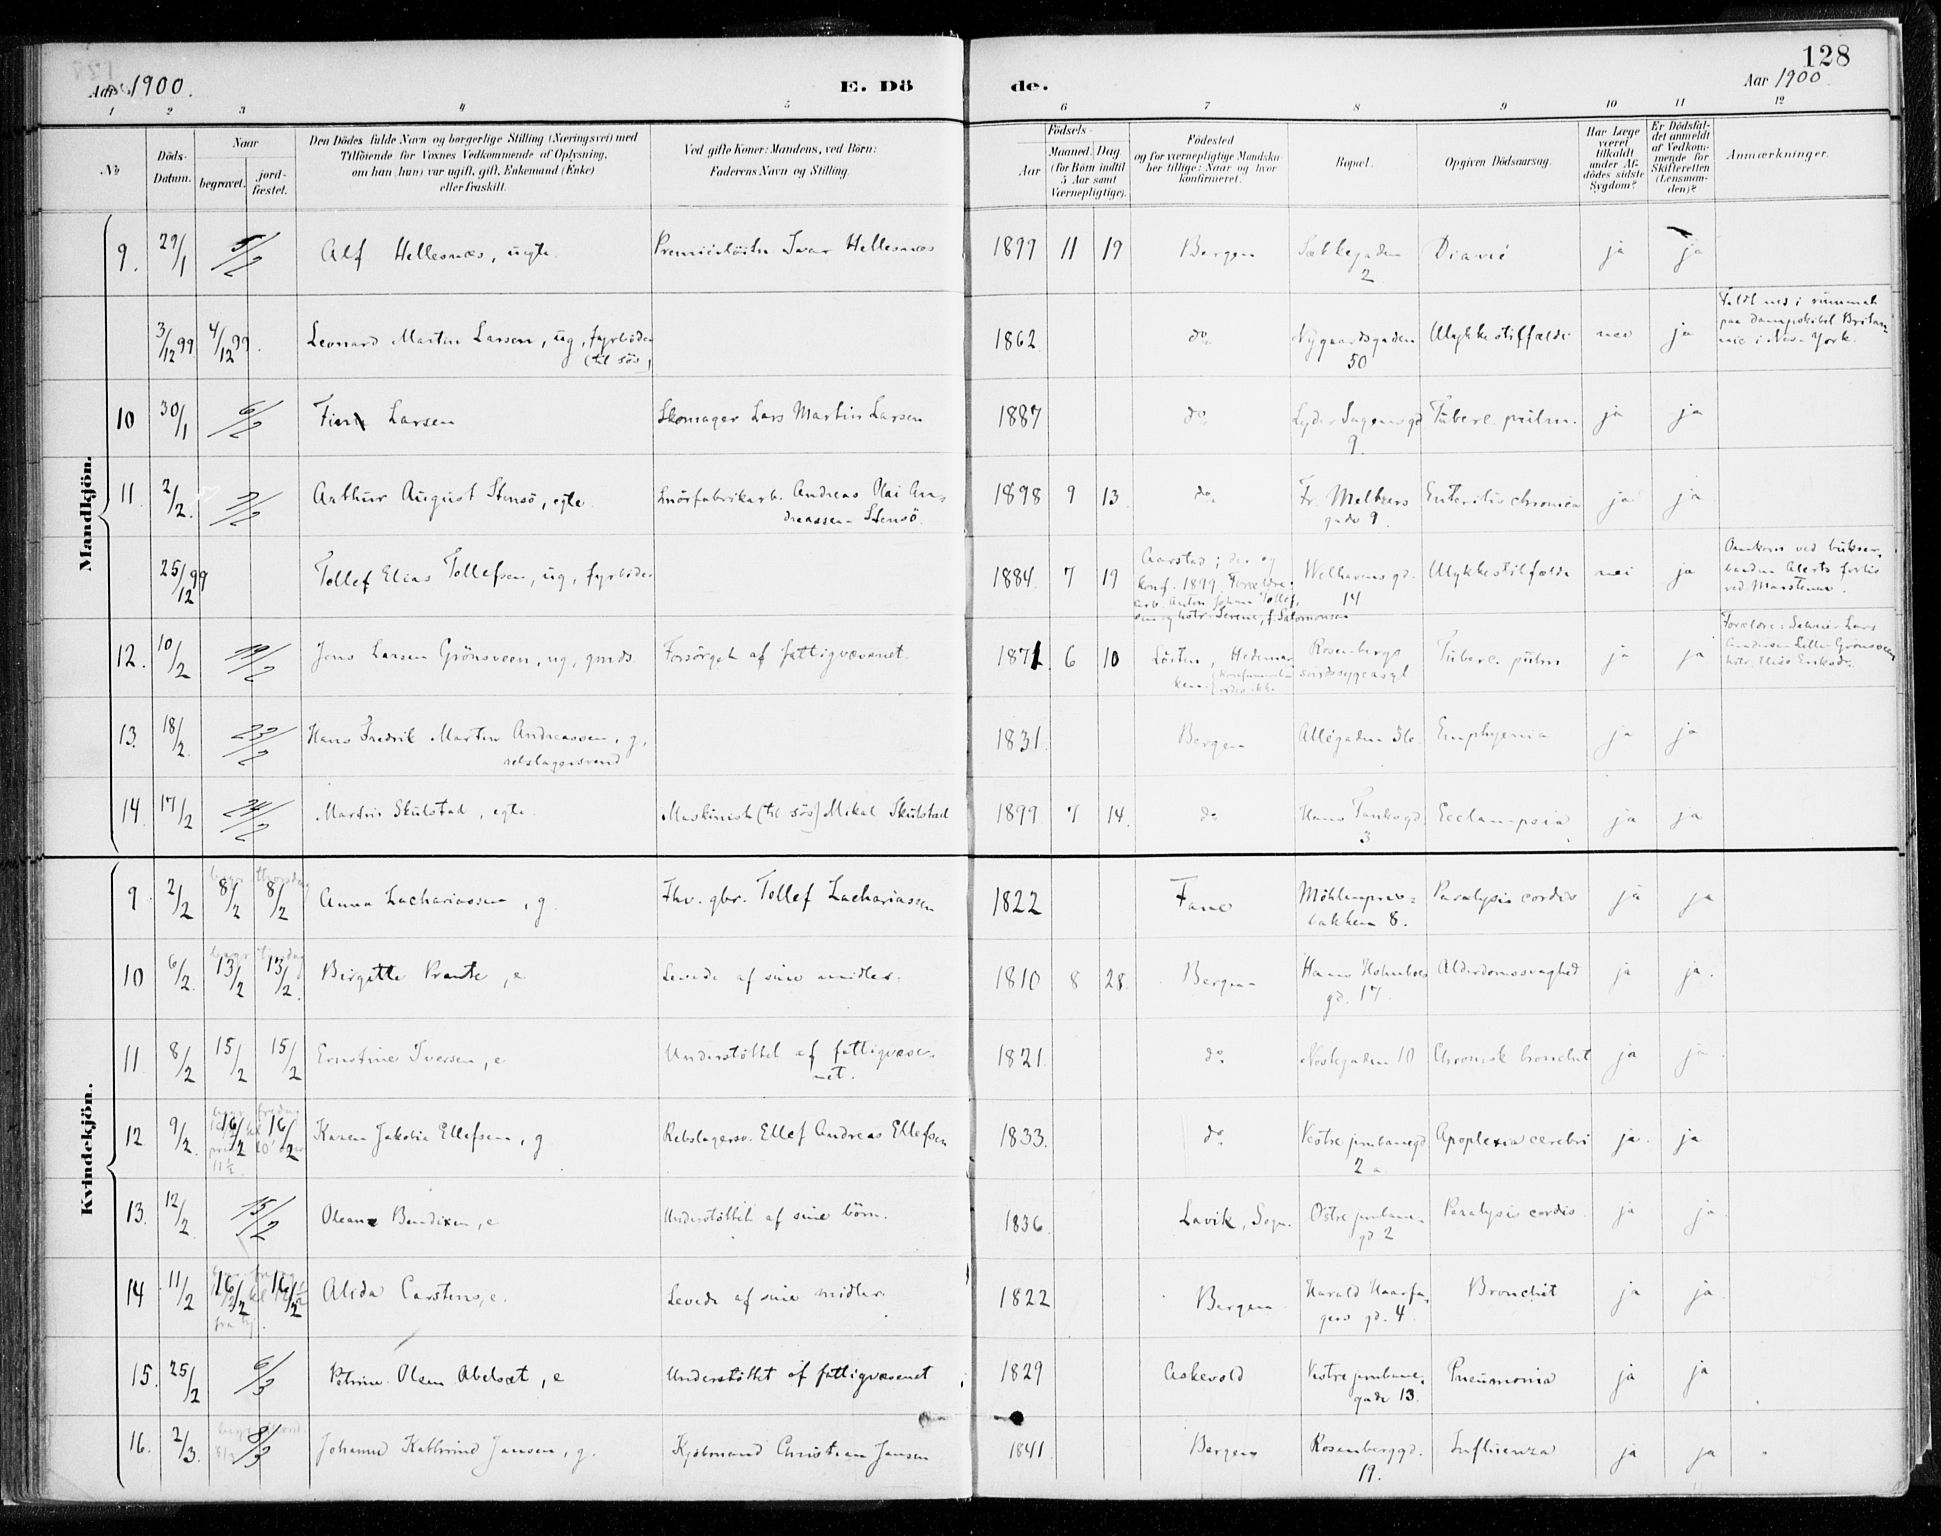 128
Aar 1900.
E. Dö
de.
Aar 1900
1 2 3 4 5 6 7 8 9 10 11 12
No
Döds-Datum.
Naar
begravet.
jord-fæstet.
Den Dödes fulde Navn og borgerlige Stilling (Næringsvei) med
Tilföiende for Voxnes Vedkommende af Oplysning,
om han (hun) var ugift, gift, Enkemand (Enke)
eller fraskilt.
Ved gifte Koner: Mandens, ved Börn:
Faderens Navn og Stilling.
Födsels-
Aar
Maaned. Dag
(for Börn indtil
5 Aar samt
Værnepligtige).
Födested
og for værnepligtige Mandska-
ber tillige: Naar og hvor
konfirmeret.
Bopæl.
Opgiven Dödsaarsag.
Har Læge
været
tilkaldt
under Af-
dödes sidste
Sygdom?
Er Dödsfal-
det anmeldt
af Vedkom-
mende for
Skifteretten
(Lensman-
den)?
Anmærkninger.
Mandkjön.
9. 29/1 5/2 Alf Hellesnæs, uegte. Premierløitn. Ivar Hellesnæs 1899 11 19 Bergen 2 ja ja
3/12 99 4/12 99. Leonard Martin Larsen, ug, fyrböder (til søs) 1862 do Nygaardsgaden 50 Ulykkestilfælde nei ja Faldt ned i rummet paa dampskibet Britannic i New York.
10 30/1 6/2 Larsen Skomager Lars Martin Larsen 1887 do Lyder Sagensgd 9. Tuberc. pulm. ja ja
11. 2/2. 7/2 Arthur August Stensö, egte. Snörfabrikarb. Andreas Olai Andreassen Stensö. 1898 9 13. do Fr. Meltzers gade 9. Enteritis chronica ja ja
25/12 99 Tollef Elias Tollefsen, ug, fyrböder 1884 7 19 Aarstad; der og konf. 1899. Forældre: arb. Anton Johan Tollefsen og hstr. Serene, f. Salomonsen Welhavensgd. 14 Ulykkestilfælde nei ja Omkom ved forlis ved Marstenen.
12. 10/2 19/2 Jens Larsen Grönsveen, ug, gmds. Forsörget af fattigvæsenet. 1871 6 10 Löiten, Hedemarken. Rosenbergs sindssygeasyl Tuberc. pulm ja ja Forældre: Lars Andersen Lille Grönsveen hstr. Elise Eriksdr.
13. 18/2. 23/2 Hans Fredrik Martin Andreassen, g, rebslagersvend 1831. Bergen Allégaden Emphysema ja ja
14. 17/2 24/2 Martin Skulstad, egte. Maskinist (til søs) Mikal Skulstad 1899 7 14. do Hans Tanksgd. 3 Ecclampsia ja ja
Kvindekjön.
9 2/2 8/2 8/2 Anna Zachariassen, g. Fhv. gbr. Tollef Zachariassen 1822 Fane Möhlenprisbakken 8. Paralysis cordis ja ja
10 6/2. 13/2 13/2. Birgitte Prante, e Levede af sine midler. 1810 8 28. Bergen Hans Holmboes gd. 17 Alderdomssvaghed ja ja.
11. 8/2 15/2 15/2 Ernstine Iversen, e Understöttet af fattigvæsenet. 1821. do Nöstegaden 10 Chronisk bronchit ja ja
12 9/2. 16/2 16/2 Karen Jakobia Ellefsen, g Rebslagersv. Ellef Andreas Ellefsen 1833. do Vestre jernbanegd 2 a Apoplexia cerebri ja. ja
13. 12/2 15/2 Oleane Bendixen, e Understöttet af sine börn. 1836 Lavik, Sogn. Östre jernbanegd 2 Paralysis cordis. ja ja
14 11/2 16/2 16/2 Alida Carstens, e. Levede af sine midler. 1822 Bergen Harald Haarfagers gd. 4. Bronchit ja ja
15. 25/2 6/3 Petrine Olsen Abelsæt, e Understöttet af fattigvæsenet 1829 Askevold Vestre jernbanegade 13. Pneumonia ja ja
16. 2/3. 8/3 Johanne Kathrine Jansen, g. Kjöbmand Christian Jansen 1841 Bergen Rosenberggd. 19. Influenza ja ja